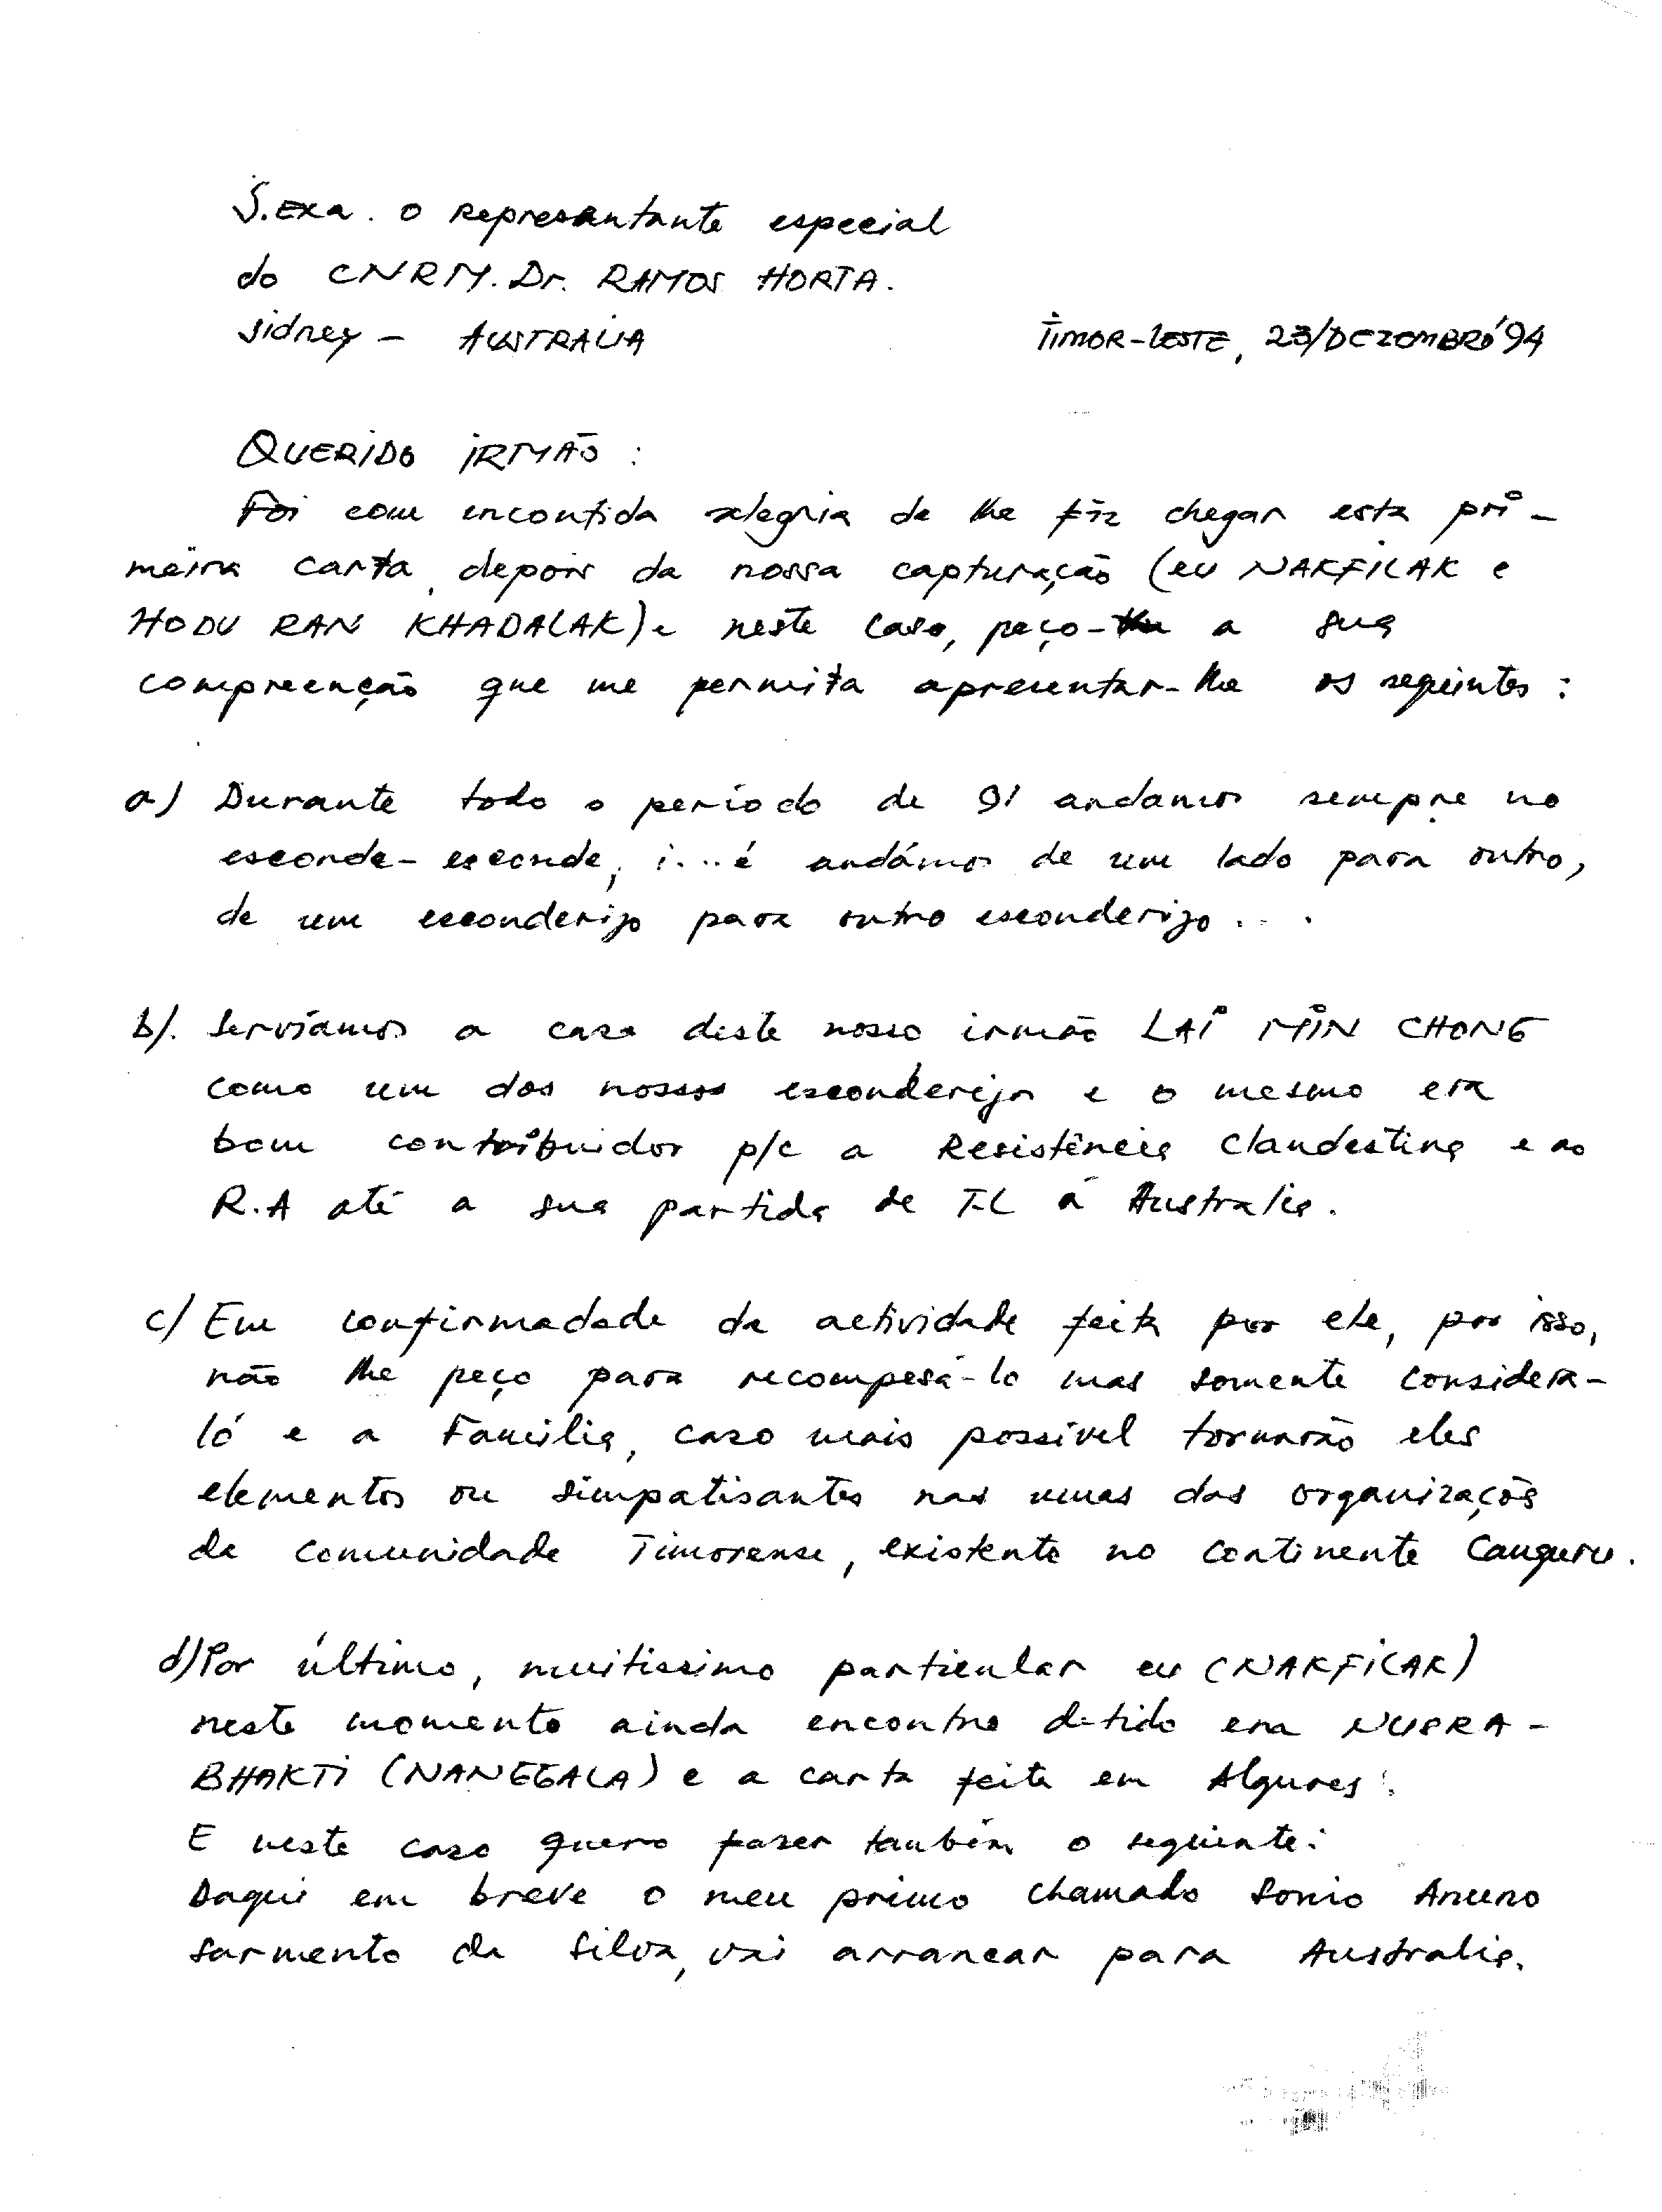 S.Exa. o representante especial
do CNRM. Dr. RAMOS HORTA.
Sidney - AUSTRALIA
TIMOR-LESTE, 23/DEZEMBRO'94
QUERIDO IRMÃO :
Foi com incontida alegria de lhe fiz chegar esta pri-
meira carta, depois da nossa capturação (eu NAKFILAK e
HODU RAN KHADALAK) e neste caso, peço- a sua
compreenção que me permita apresentar-lhe os seguintes :
a) Durante todo o período de 91 andamos sempre no
esconde-esconde, i...é andámos de um lado para outro,
de um esconderijo para outro esconderijo....
b). Servíamos a casa deste nosso irmão LAI MIN CHONG
como um dos nossos esconderijos e o mesmo era
bom contribuidor p/c a Resistência Clandestina e ao
R.A até a sua partida de T-L à Australia.
c) Em confirmadade da actividade feita por ele, por isso,
não lhe peço para recompesá-lo mas somente considera-
ló e a Familia, caso mais possível tornarão eles
elementos ou simpatisantes nas umas das organizações
da comunidade Timorense, existente no continente Canguru.
d) Por último, muitissimo particular eu (NAKFILAK)
neste momento ainda encontro detido em NUSRA-
BHAKTI (NANGGALA) e a carta feita em Algures!.
E neste caso quero fazer também o seguinte:
Daqui em breve o meu primo chamado Sonio Aneno
Sarmento da Silva, vai arrancar para Australia.